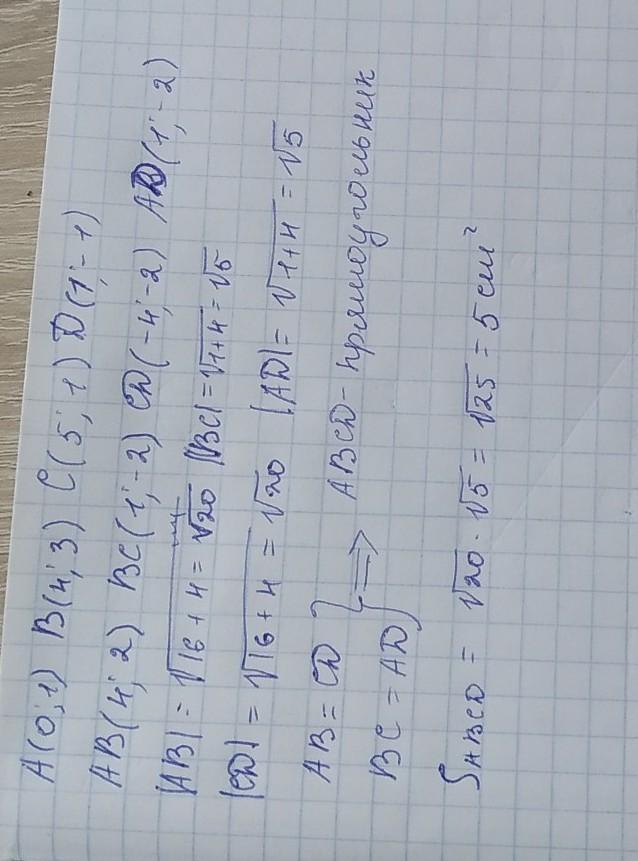 A(0;1) B(4;3) C(5;1) D(1;-1)
AB(4;2) BC(1;-2) CD(-4;-2) AD(1;-2)
|AB| = √16+4 = √20 |BC| = √1+4 = √5
|CD| = √16+4 = √20 |AD| = √1+4 = √5
AB = CD } ⇒ ABCD - прямоугольник
BC = AD
SABCD = √20 · √5 = √25 = 5 см²